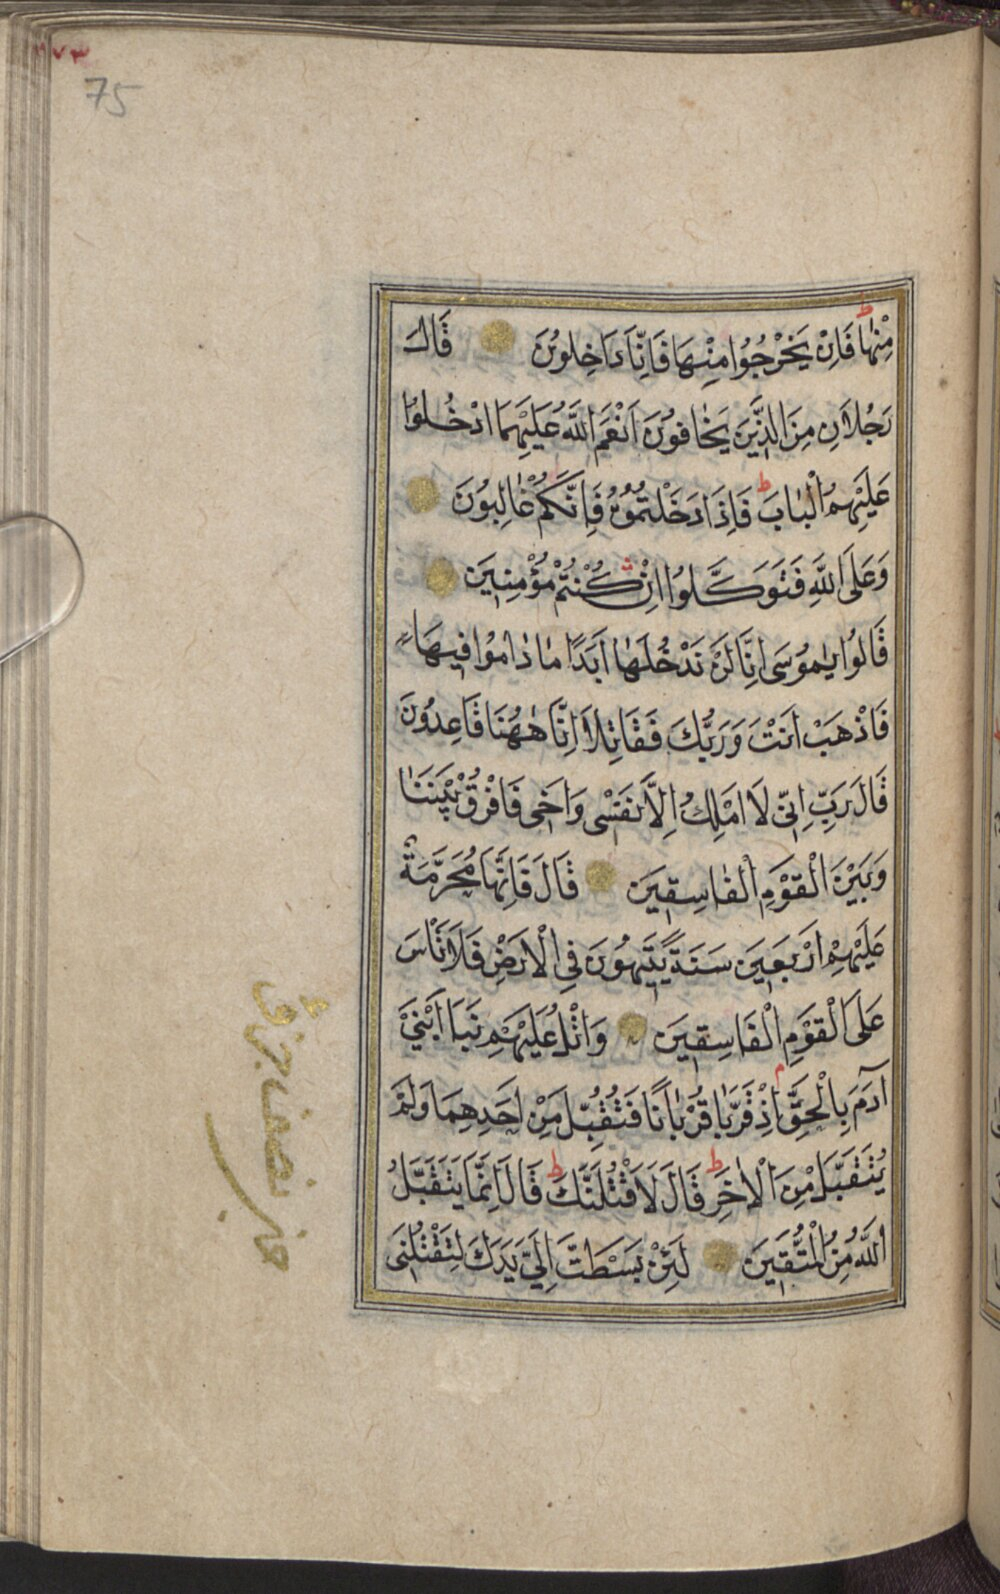 ٧٣
75
مِنْهَا فَاِنْ يَخْرُجُوا مِنْهَا فَاِنَّا دَاخِلُونَ قَالَ
رَجُلَانِ مِنَ الَّذِينَ يَخَافُونَ اَنْعَمَ اللَّهُ عَلَيْهِمَا ادْخُلُوا
عَلَيْهِمُ الْبَابَ ط فَاِذَا دَخَلْتُمُوهُ فَاِنَّكُمْ غَالِبُونَ
وَعَلَى اللَّهِ فَتَوَكَّلُوا اِنْ كُنْتُمْ مُؤْمِنِينَ
قَالُوا يَا مُوسَى اِنَّا لَنْ نَدْخُلَهَا اَبَدًا مَا دَامُوا فِيهَا
فَاذْهَبْ اَنْتَ وَرَبُّكَ فَقَاتِلَا اِنَّا هٰهُنَا قَاعِدُونَ
قَالَ رَبِّ اِنِّى لَا اَمْلِكُ اِلَّا نَفْسِى وَاَخِى فَافْرُقْ بَيْنَنَا
وَبَيْنَ الْقَوْمِ الْفَاسِقِينَ قَالَ فَاِنَّهَا مُحَرَّمَةٌ
عَلَيْهِمْ اَرْبَعِينَ سَنَةً يَتِيهُونَ فِى الْاَرْضِ فَلَا تَاْسَ
عَلَى الْقَوْمِ الْفَاسِقِينَ وَاتْلُ عَلَيْهِمْ نَبَاَ ابْنَىْ
آدَمَ بِالْحَقِّ م اِذْ قَرَّبَا قُرْبَانًا فَتُقُبِّلَ مِنْ اَحَدِهِمَا وَلَمْ
يُتَقَبَّلْ مِنَ الْاٰخَرِ ط قَالَ لَاَقْتُلَنَّكَ ط قَالَ اِنَّمَا يَتَقَبَّلُ
اللَّهُ مِنَ الْمُتَّقِينَ لَئِنْ بَسَطْتَ اِلَىَّ يَدَكَ لِتَقْتُلَنِى
حزب نصف جزؤ